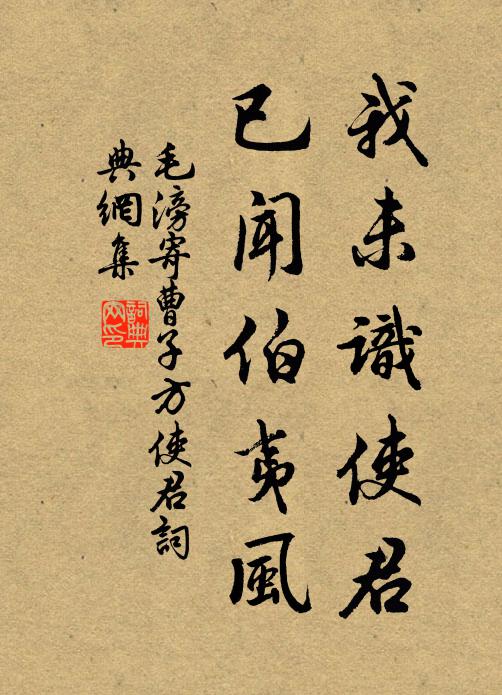 我未識使君
已聞伯夷風
毛滂寄曹子方使君詞
典網集
詞典網印